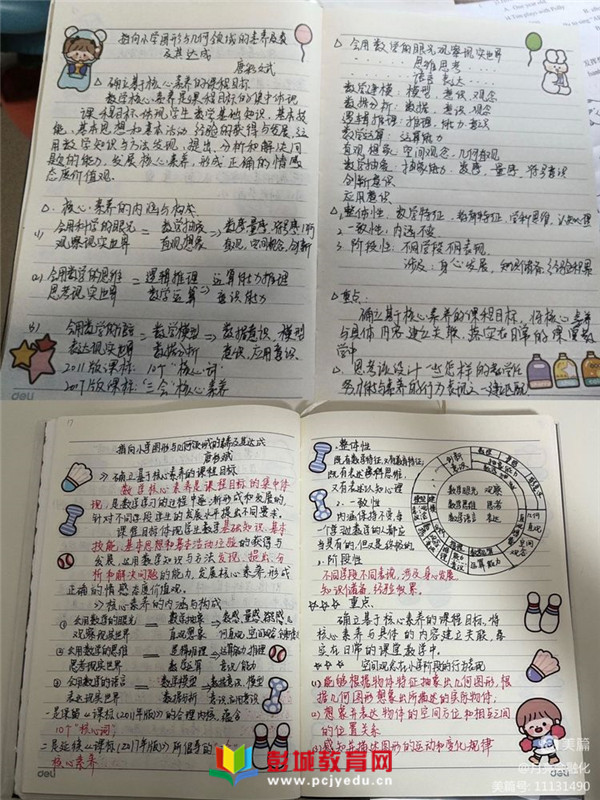 指向小学图形与几何领域的素养及表
及其达成
唐彩斌
△ 确立基于核心素养的课程目标
数学核心素养是课程目标的集中体现
课程目标体现学生数学基础知识、基本技
能、基本思想和基本活动经验的获得与发展,运
用数学知识与方法发现、提出、分析和解决问
题的能力,发展核心素养,形成正确的情感
态度价值观。
△ 核心素养的内涵与构成
观察现实世界 直观想象 直观,空间观念,创新
2) 会用数学的思维 = 逻辑推理 运算能力推理
思考现实世界 数学运算 意识能力
3) 会用数学的语言 = 数学模型 = 数据意识、模型
表达现实世界 数据分析 意识、应用意识
2011版课标: 10个"核心词"
2017版课标:"三会"核心素养
deli
△ 会用数学的眼光观察现实世界
思维思考
语言表达
数学建模: 模型 意识、观念
数据分析: 数据 意识、观念
逻辑推理: 推理、能力、意识
数学运算: 运算能力
直观想象: 空间观念、几何直观
数学抽象: 抽象能力、数感、量感、符号意识
创新意识
应用意识
2. 一致性: 内涵不变
3. 阶段性: 不同学段不同表现
涉及: 身心发展,知识储备,经验积累
△ 重点:
确立基于核心素养的课程目标,将核心素养
与具体内容建立关联,落实在日常的课堂教
学中
指向小学图形与几何领域的素养及其达成
唐彩斌
1> 确立基于核心素养的课程目标
数学核心素养是课程目标的集中体
现,是数学学习的过程中逐渐形成和发展的,
针对不同学段学生的发展水平提出不同要求。
课程目标体现学生数学基础知识、基本
技能、基本思想和基本活动经验的获得与
发展,运用数学知识与方法发现、提出、分
析和解决问题的能力,发展核心素养,形成
正确的情感态度价值观。
2> 核心素养的内涵与构成
① 会用数学的眼光 = 数学抽象
观察现实世界 直观想象
② 会用数学的思维 = 逻辑推理 运算能力、推理
思考现实世界 数学运算 意识/能力
③ 会用数学的语言 = 数学建模 数据意识、模型
表达现实世界 数据分析 意识、应用意识
10个"核心词"
核心素养
deli
1. 整体性
既有数学特征,又有教育特征,
又有表达认知心理
2. 一致性
内涵保持不变,每
3. 阶段性
不同学段不同表现,涉及身心发展、
知识储备、经验积累。
重点
确立基于核心素养的课程目标,将
核心素养与具体的内容建立关联,落
实在日常的课堂教学中。
空间观念在小学阶段的行为表现
(1) 能够根据物体特征抽象出几何图形,根
据几何图形想象出所描述的实际物体;
(2) 想象并表达物体的空间方位和相互之间
的位置关系
(3) 感知并描述图形的运动和变化规律
数学眼光 观察
数学思维 思考
数学语言 表达
运算能力
deli
彭城教育网
www.pcjyedu.cn
美篇
美篇号: 11131490